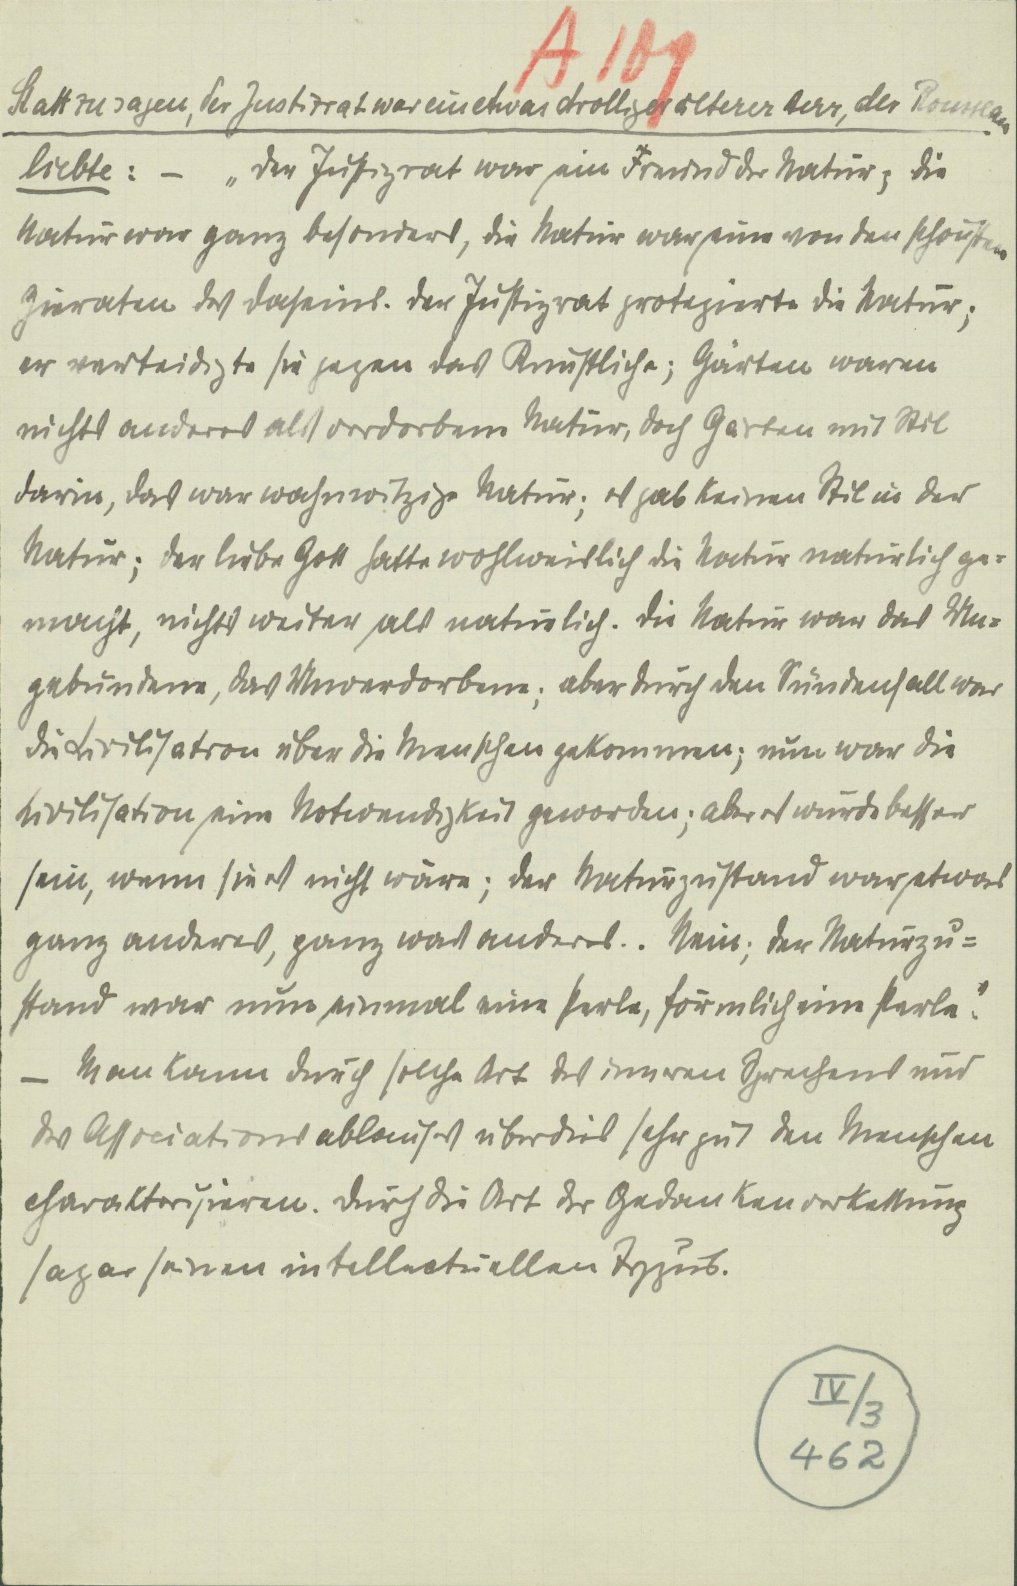 A 189
Statt zu sagen, der Justizrat war ein etwas drolliger älterer Herr, der Rousseau
liebte: – „Der Justizrat war ein Freund der Natur; die
Natur war ganz besonders, die Natur war eine von den schönsten
Zieraten des Daseins. Der Justizrat protegierte die Natur;
er verteidigte sie gegen das Künstliche; Gärten waren
nichts anderes als verdorbene Natur, doch Gärten mit Stil
darin, das war wahnwitzige Natur; es gab keinen Stil in der
Natur; der liebe Gott hatte wohlweislich die Natur natürlich ge=
macht, nichts weiter als natürlich. Die Natur war das Un=
gebundene, das Unverdorbene; aber durch den Sündenfall war
die Civilisation über die Menschen gekommen; nun war die
Civilisation eine Notwendigkeit geworden; aber es würde besser
sein, wenn sie es nicht wäre; der Naturzustand war etwas
ganz anderes, ganz was anderes.. Nein; der Naturzu=
stand war nun einmal eine Perle, förmlich eine Perle."
– Man kann durch solche Art des inneren Sprechens und
des Associationsablaufes überdies sehr gut den Menschen
charakterisieren. Durch die Art der Gedankenverkettung
sogar seinen intellectuellen Typus.
IV/3
462